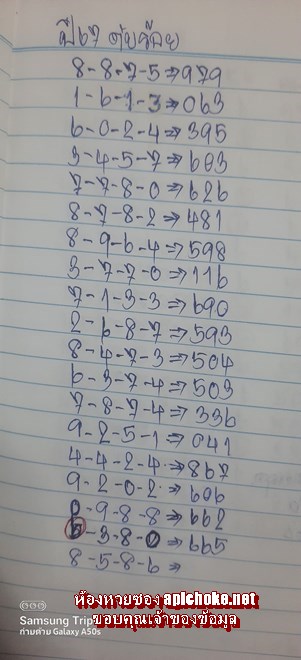 ปี67 ตุ้มจ้อย
8-8-7-5⇒979
1-6-1-3⇒063
6-0-2-4⇒395
3-4-5-7⇒603
7-7-8-0⇒626
8-7-8-2⇒481
8-9-6-4⇒598
3-7-7-0⇒116
7-1-3-3⇒690
2-6-8-7⇒593
8-4-7-3⇒504
6-3-7-4⇒503
7-8-7-4⇒336
9-2-5-1⇒041
4-4-2-4⇒867
9-2-0-2⇒606
-9-8-8⇒662
6-3-8-0⇒665
8-5-8-6⇒
ห้องหวยซอง apichoke.net
ขอบคุณเจ้าของข้อมูล
Samsung Trip
ถ่ายด้วย Galaxy A50s